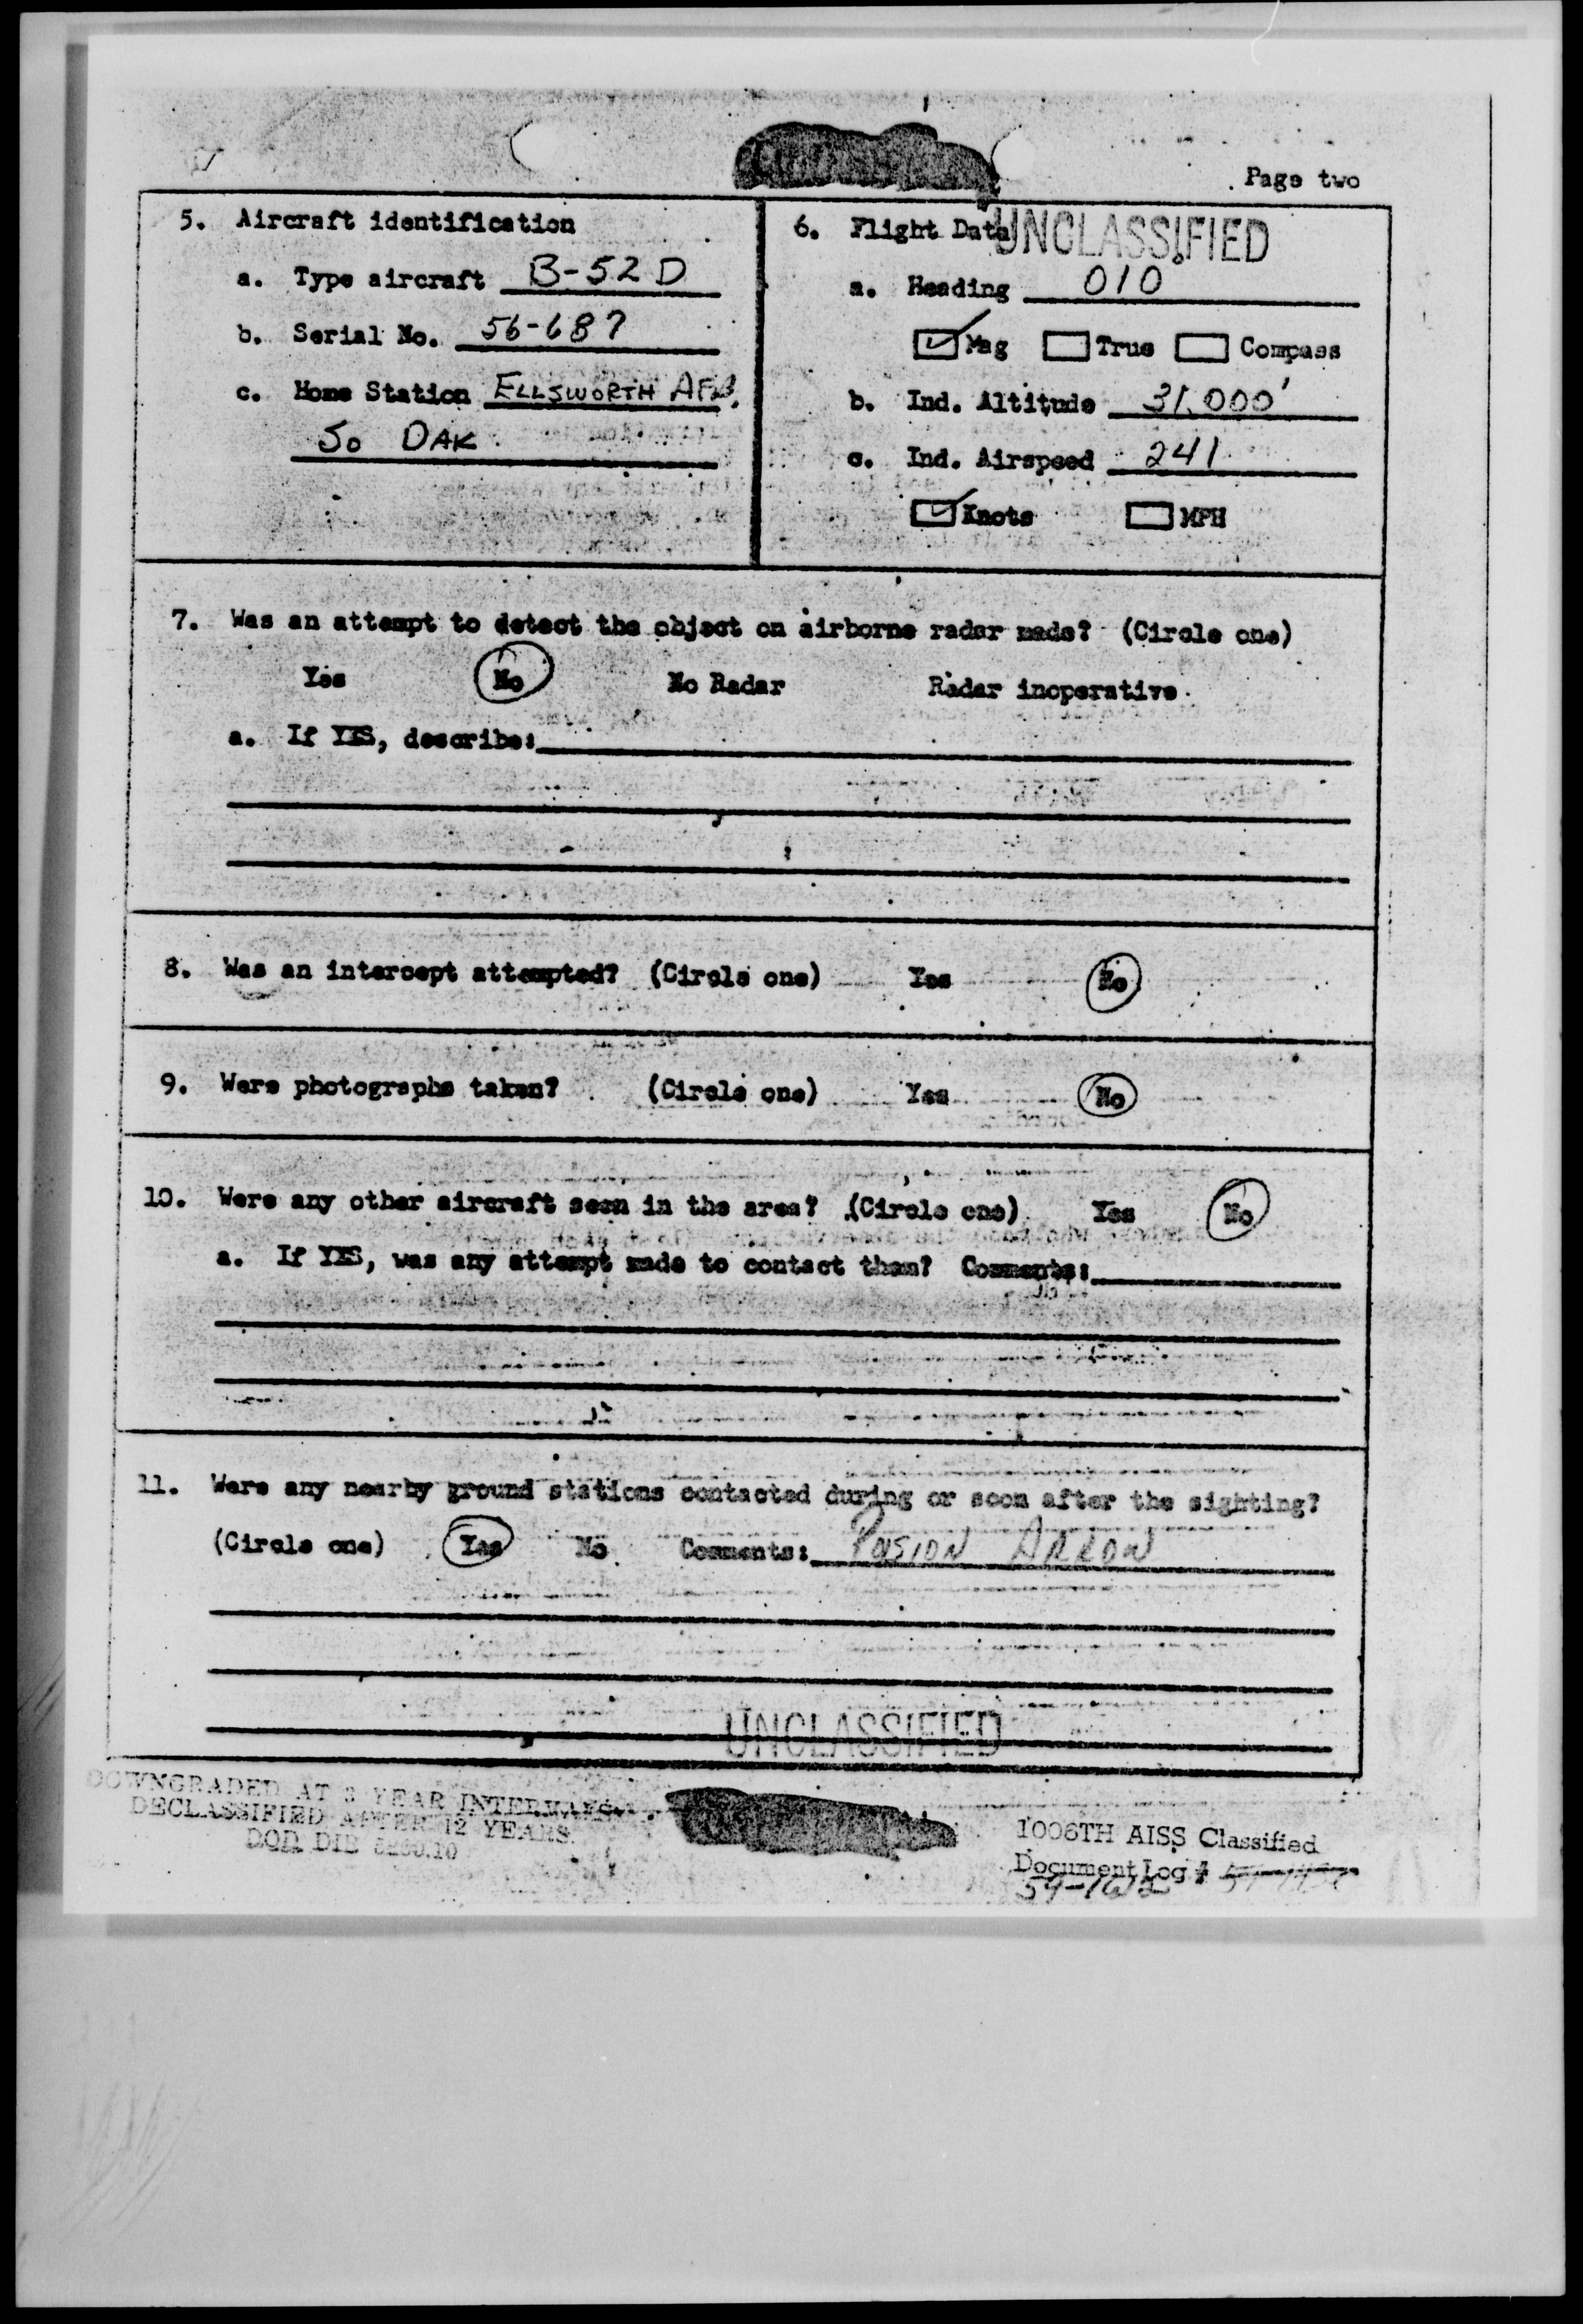 Page two
5. Aircraft identification
a. Type aircraft B-52 D
b. Serial No. 56-687
c. Home Station ELLSWORTH AFB,
So DAK
6. Flight Data
UNCLASSIFIED
a. Heading 010°
Mag True Compass
b. Ind. Altitude 31,000'
c. Ind. Airspeed 241
Knots MPH
7. Was an attempt to detect the object on airborne radar made? (Circle one)
Yes No No Radar Radar inoperative
a. If YES, describe:
8. Was an intercept attempted? (Circle one) Yes No
9. Were photographs taken? (Circle one) Yes No
10. Were any other aircraft seen in the area? (Circle one) Yes No
a. If YES, was any attempt made to contact them? Comments:
11. Were any nearby ground stations contacted during or soon after the sighting?
(Circle one) Yes No Comments: POSION ARROW
UNCLASSIFIED
DOWNGRADED AT 3 YEAR INTERVALS
DECLASSIFIED AFTER 12 YEARS
DOD DIR 5200.10
1006TH AISS Classified
Document Log #